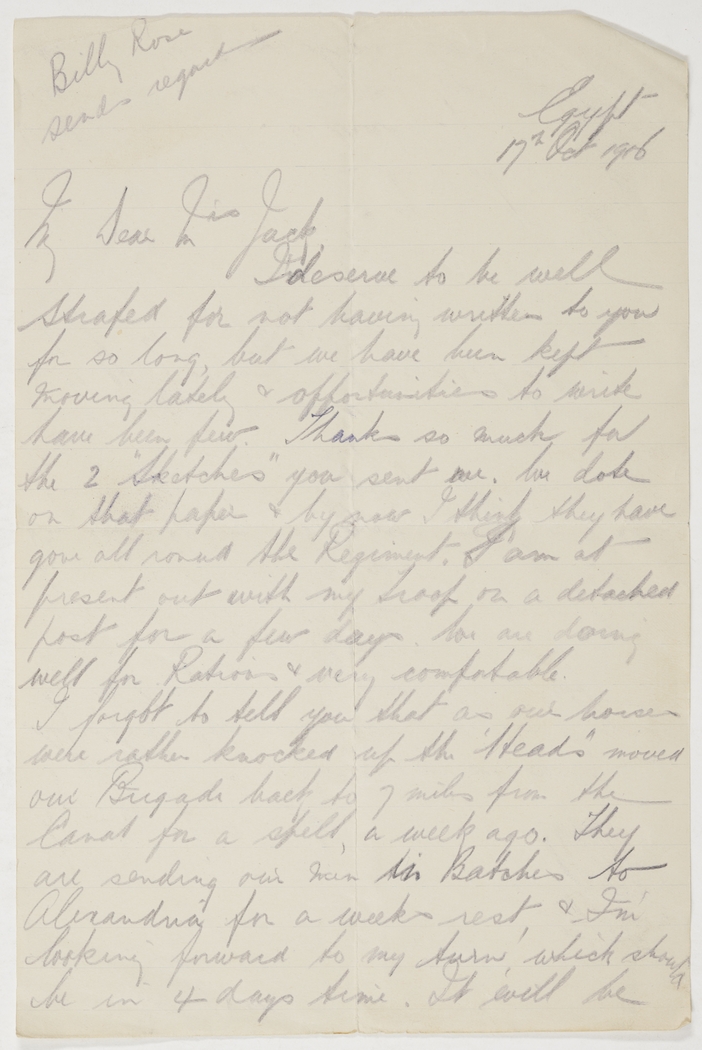 Billy Rose
sends regards
Egypt
17th Oct 1916
My Dear Mrs Jack,
I deserve to be well
strafed for not having written to you
for so long, but we have been kept
moving lately & opportunities to write
have been few. Thanks so much for
the 2 "Sketches" you sent me. We dote
on that paper & by now I think they have
gone all round the Regiment. I am at
present out with my troop on a detached
post for a few days. We are doing
well for Rations & very comfortable.
I forgot to tell you that as our horses
were rather knocked up the "Heads" moved
our Brigade back to 7 miles from the
Canal for a spell, a week ago. They
are sending our men in Batches to
Alexandria for a weeks rest, & I'm
looking forward to my turn, which should
be in 4 days time. It will be